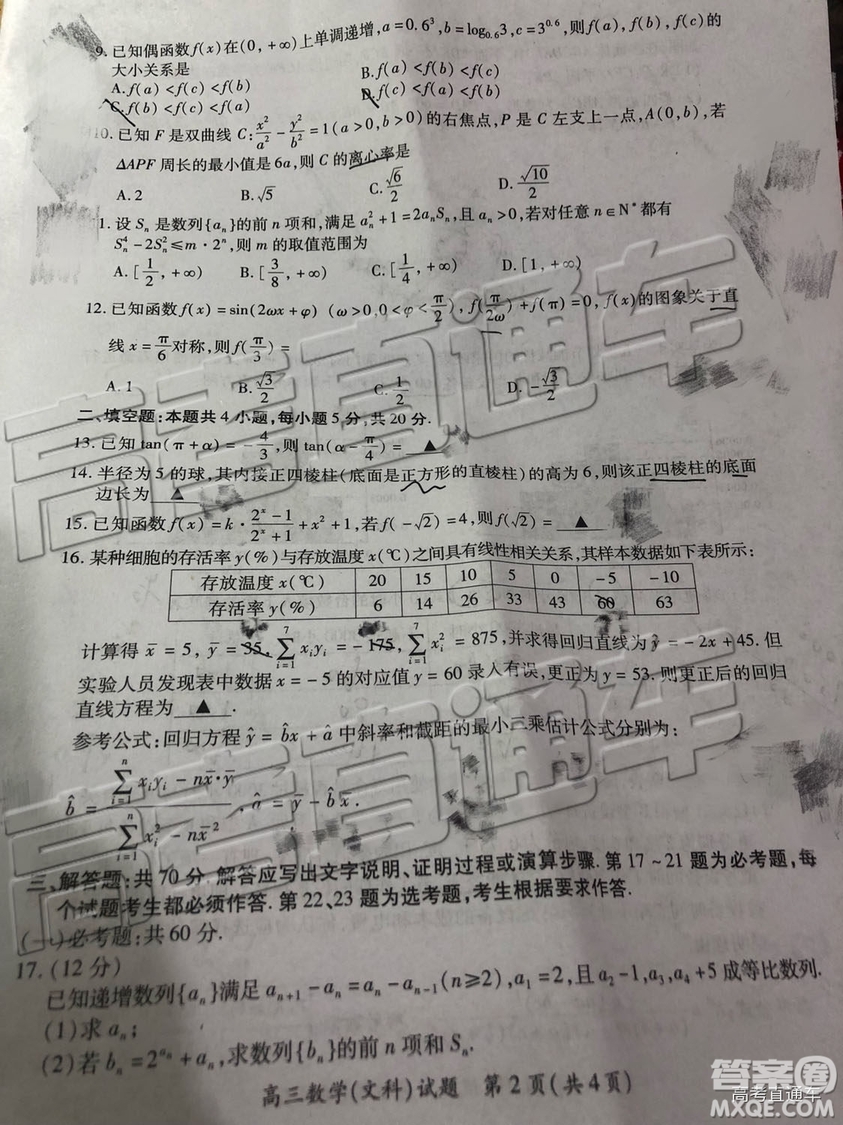 9. 已知偶函数 f(x) 在(0, +∞)上单调递增, a = 0.6³, b = log₀.₆3, c = 3^0.6, 则 f(a), f(b), f(c) 的
大小关系是
A. f(a) < f(c) < f(b) B. f(a) < f(b) < f(c)
C. f(b) < f(c) < f(a) D. f(c) < f(a) < f(b)
10. 已知 F 是双曲线 C: x²/a² - y²/b² = 1(a > 0, b > 0)的右焦点, P 是 C 左支上一点, A(0, b), 若
△APF 周长的最小值是 6a, 则 C 的离心率是
A. 2 B. √5 C. √6/2 D. √10/2
1. 设 Sₙ 是数列{aₙ}的前 n 项和, 满足 aₙ² + 1 = 2aₙSₙ, 且 aₙ > 0, 若对任意 n∈N* 都有
Sₙ⁴ - 2Sₙ² ≤ m·2ⁿ, 则 m 的取值范围为
A. [1/2, +∞) B. [3/8, +∞) C. [1/4, +∞) D. [1, +∞)
12. 已知函数 f(x) = sin(2ωx + φ) (ω > 0, 0 < φ < π/2), f(π/2ω) + f(π) = 0, f(x)的图象关于直
线 x = π/6 对称, 则 f(π/3) =
A. 1 B. √3/2 C. 1/2 D. -√3/2
二、填空题: 本题共 4 小题, 每小题 5 分, 共 20 分.
13. 已知 tan(π + α) = -4/3, 则 tan(α - π/4) = ▲ .
14. 半径为 5 的球, 其内接正四棱柱(底面是正方形的直棱柱)的高为 6, 则该正四棱柱的底面
边长为 ▲
15. 已知函数 f(x) = k · (2ˣ - 1)/(2ˣ + 1) + x² + 1, 若 f(-√2) = 4, 则 f(√2) = ▲ .
16. 某种细胞的存活率 y(%)与存放温度 x(℃)之间具有线性相关关系, 其样本数据如下表所示:
存放温度 x(℃) 20 15 10 5 0 -5 -10
存活率 y(%) 6 14 26 33 43 60 63
计算得 x̄ = 5, ȳ = 35, ∑(i=1→7) xᵢyᵢ = -175, ∑(i=1→7) xᵢ² = 875, 并求得回归直线为 ŷ = -2x + 45. 但
实验人员发现表中数据 x = -5 的对应值 y = 60 录入有误, 更正为 y = 53. 则更正后的回归
直线方程为 ▲ .
参考公式: 回归方程 ŷ = b̂x + â 中斜率和截距的最小二乘估计公式分别为:
b̂ = (∑(i=1→n) xᵢyᵢ - nx̄·ȳ)/(∑(i=1→n) xᵢ² - nx̄²), â = ȳ - b̂x̄.
三、解答题: 共 70 分. 解答应写出文字说明、证明过程或演算步骤. 第 17~21 题为必考题, 每
个试题考生都必须作答. 第 22、23 题为选考题, 考生根据要求作答.
(一)必考题: 共 60 分.
17. (12 分)
已知递增数列{aₙ}满足 aₙ₊₁ - aₙ = aₙ - aₙ₋₁(n≥2), a₁ = 2, 且 a₂ - 1, a₃, a₄ + 5 成等比数列.
(1)求 aₙ;
(2)若 bₙ = 2^aₙ + aₙ, 求数列{bₙ}的前 n 项和 Sₙ.
高三数学(文科)试题 第 2 页(共 4 页)
高考直通车
高考直通车
答案圈
高考直通车
MXQE.COM